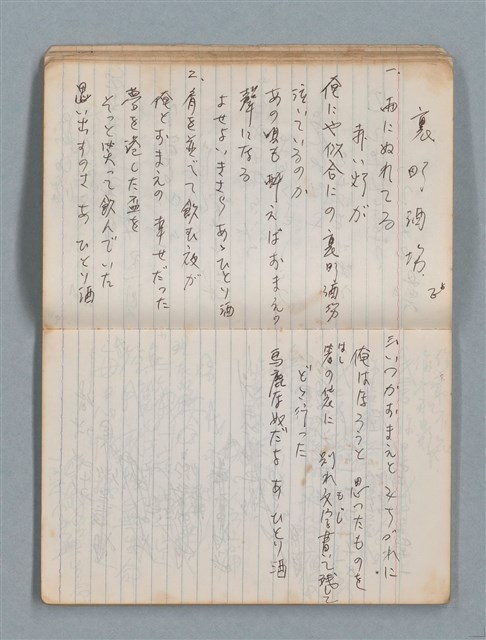 裏町酒場
一、雨にぬれてる
赤い灯が
俺にや似合にの裏町酒場
泣いているのか
あの唄も酔えばおまえの
聲になる
よせよいまさらあゝひとり酒
2、肩を並べて飲む夜が
俺とおまえの幸せだった
夢を透した盃を
そっと笑って飲んでいた
思い出すのさ あ ひとり酒
三、いつかおまえと
俺ははろうと思ったものを
はし
箸の袋に 別れ文字書て残して
もじ
どこ行った
馬鹿な奴だよ あ ひとり酒